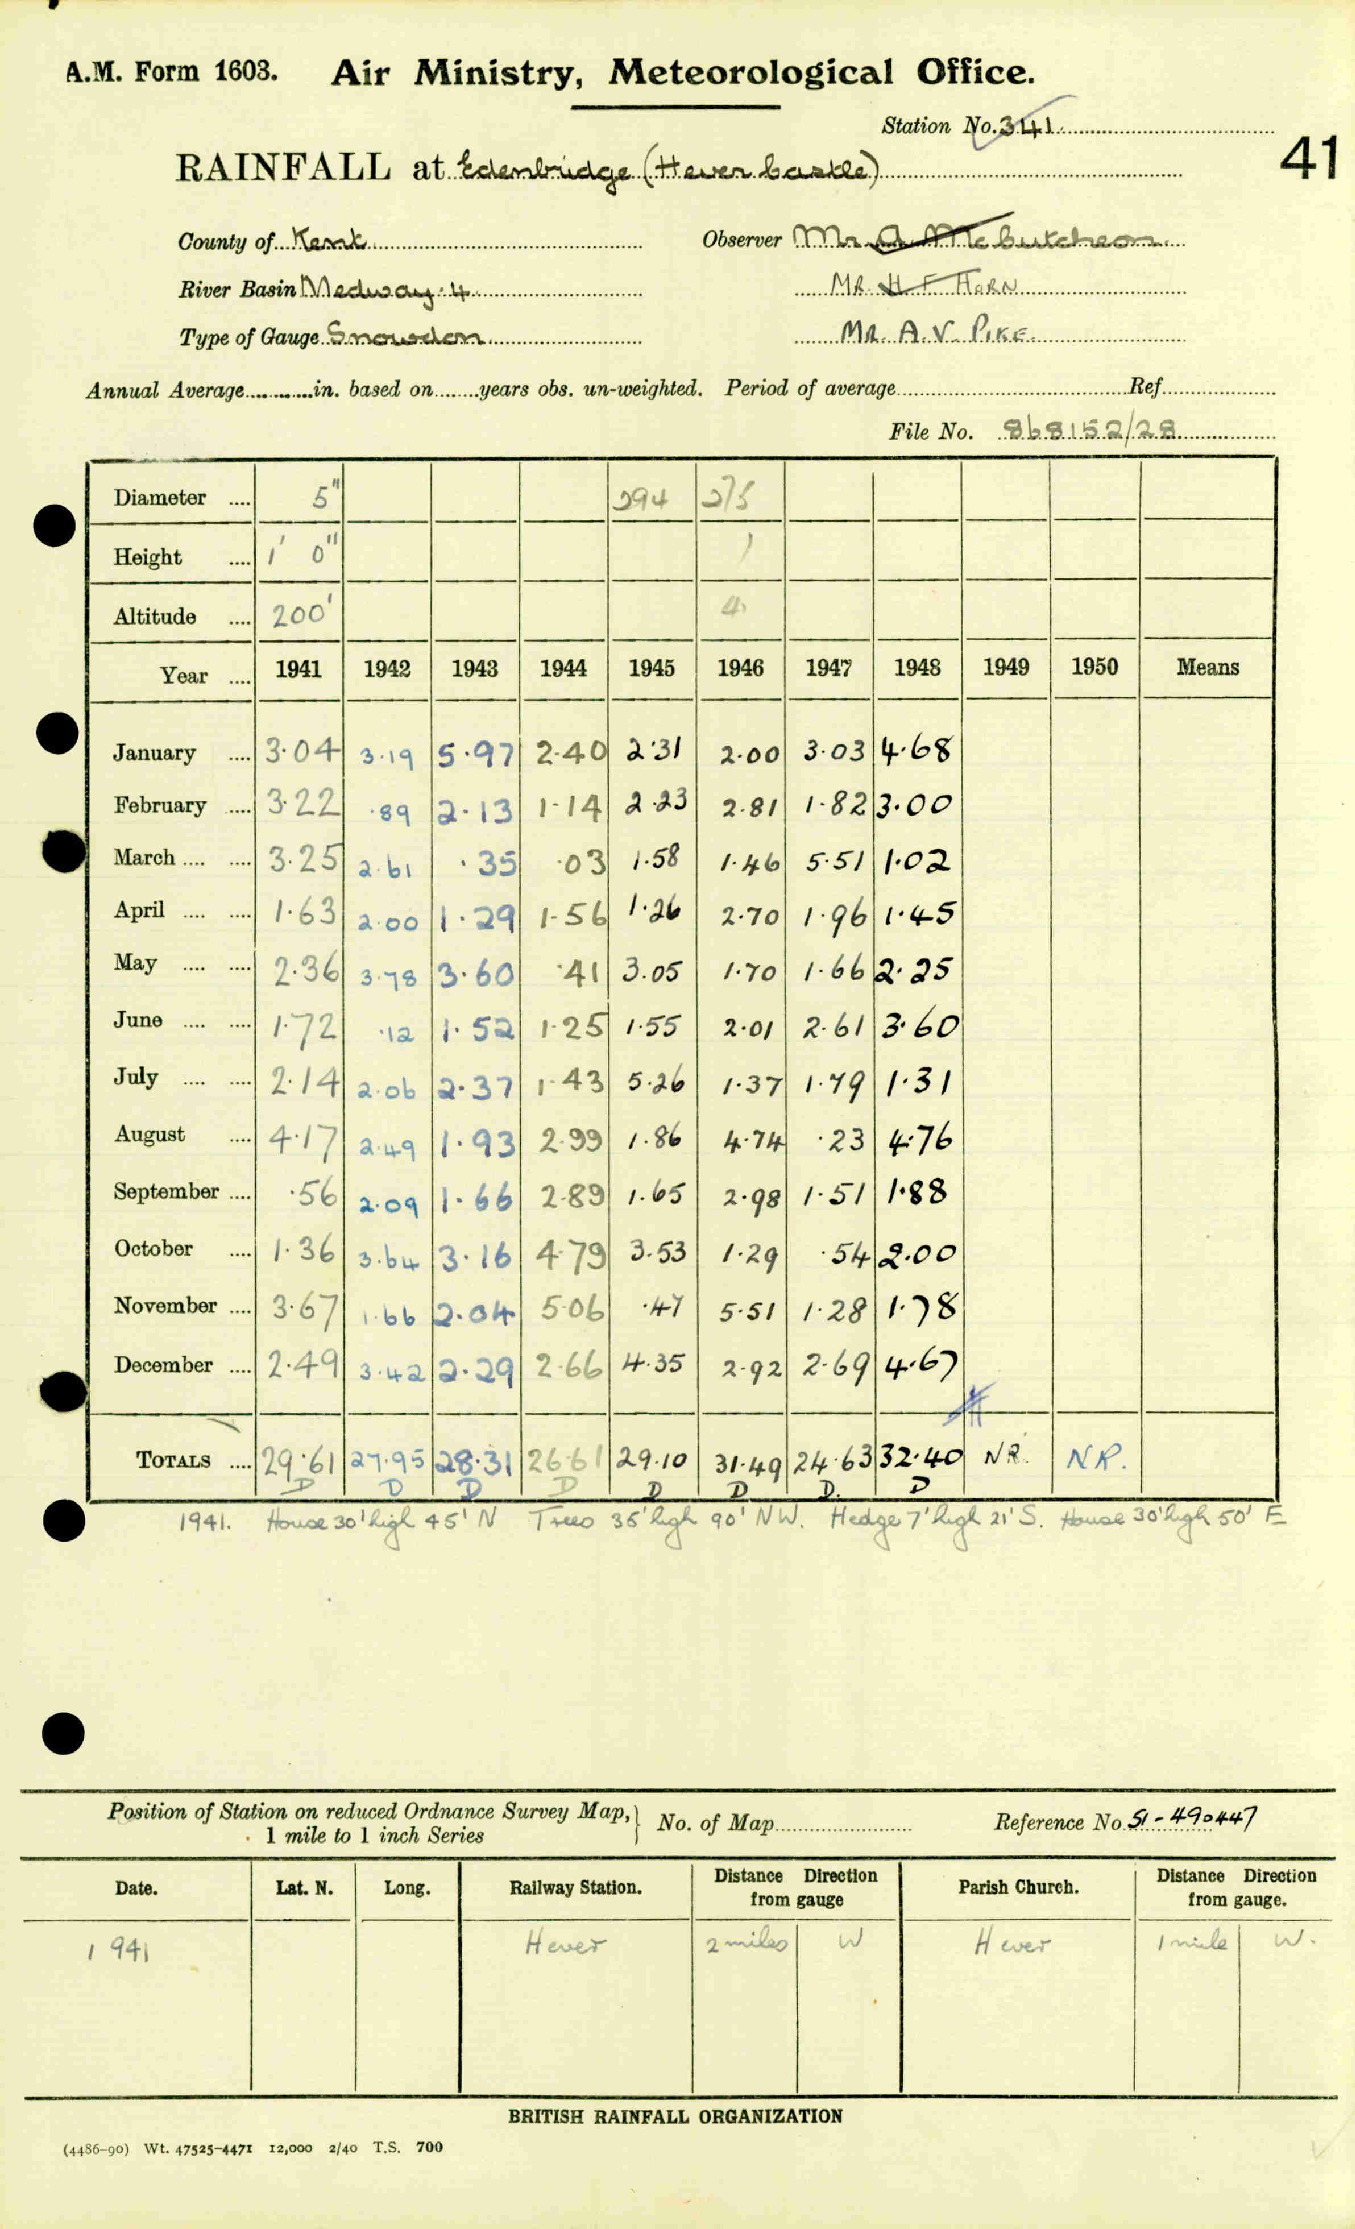 A.M. Form 1603. Air Ministry, Meteorological Office.
Station No. 341
41
RAINFALL at Edenbridge (Hever Castle)
County of Kent Observer Mr A McCutcheon
River Basin Medway 4 MR. H F HORN
Type of Gauge Snowdon MR. A. V. PIKE.
Annual Average............in. based on........years obs. un-weighted. Period of average........Ref........
File No. 868152/28
Diameter .... 5" 294 275
Height .... 1' 0" 1
Altitude .... 200' 4
Year .... 1941 1942 1943 1944 1945 1946 1947 1948 1949 1950 Means
January .... 3.04 3.19 5.97 2.40 2.31 2.00 3.03 4.68
February .... 3.22 .89 2.13 1.14 2.23 2.81 1.82 3.00
March .... .... 3.25 2.61 .35 .03 1.58 1.46 5.51 1.02
April .... .... 1.63 2.00 1.29 1.56 1.26 2.70 1.96 1.45
May .... .... 2.36 3.78 3.60 .41 3.05 1.70 1.66 2.25
June .... .... 1.72 .12 1.52 1.25 1.55 2.01 2.61 3.60
July .... .... 2.14 2.06 2.37 1.43 5.26 1.37 1.79 1.31
August .... 4.17 2.49 1.93 2.99 1.86 4.74 .23 4.76
September .... .56 2.09 1.66 2.89 1.65 2.98 1.51 1.88
October .... 1.36 3.64 3.16 4.79 3.53 1.29 .54 2.00
November .... 3.67 1.66 2.04 5.06 .47 5.51 1.28 1.78
December .... 2.49 3.42 2.29 2.66 4.35 2.92 2.69 4.67
TOTALS .... 29.61 27.95 28.31 26.61 29.10 31.49 24.63 32.40 NR. NR.
D D D D D D D. D
1941. House 30' high 45' N Trees 35' high 90' NW. Hedge 7' high 21' S. House 30' high 50' E
Position of Station on reduced Ordnance Survey Map, } No. of Map........ Reference No. 51-490447
1 mile to 1 inch Series
Date. Lat. N. Long. Railway Station. Distance Direction from gauge Parish Church. Distance Direction from gauge.
1941 Hever 2 miles W Hever 1 mile W.
BRITISH RAINFALL ORGANIZATION
(4486-90) Wt. 47525-4471 12,000 2/40 T.S. 700